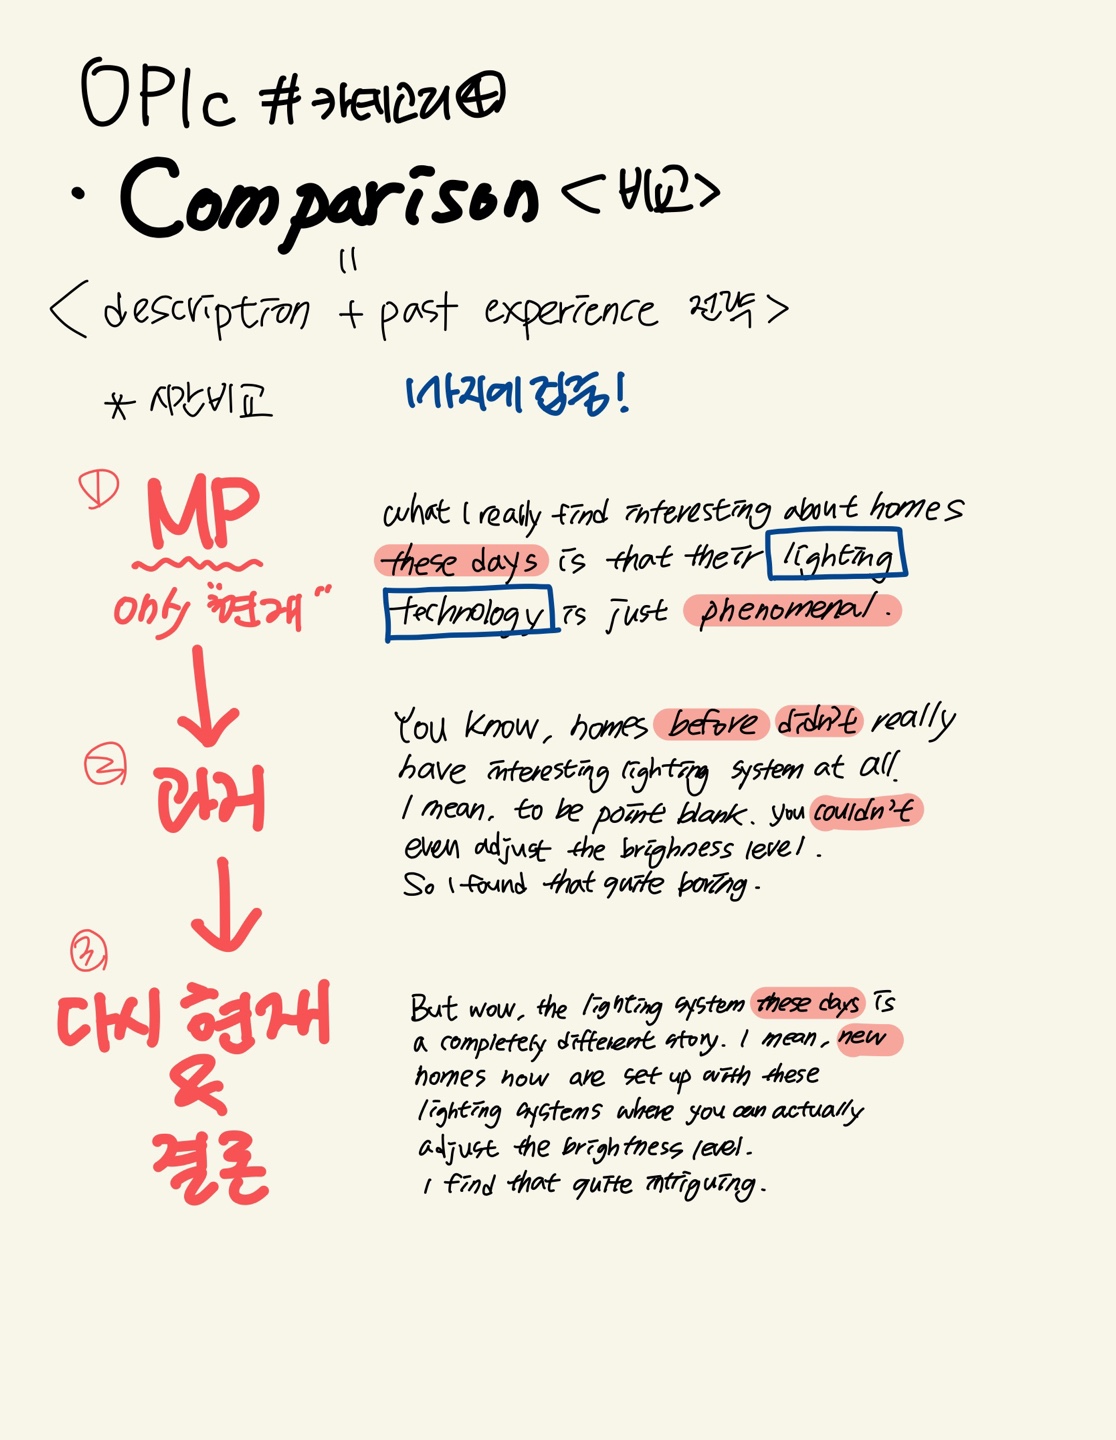 OPIc #카테고리④
· Comparison <비교>
=
<description + past experience 전략>
* 시간비교
1가지에 집중!
① MP
only "현재"
what I really find interesting about homes
these days is that their lighting
technology is just phenomenal.
② 과거
You know, homes before didn't really
have interesting lighting system at all.
I mean, to be point blank. you couldn't
even adjust the brighness level.
So I found that quite boring.
③
다시 현재
&
결론
But wow, the lighting system these days is
a completely different story. I mean, new
homes now are set up with these
lighting systems where you can actually
adjust the brightness level.
I find that quite intriguing.